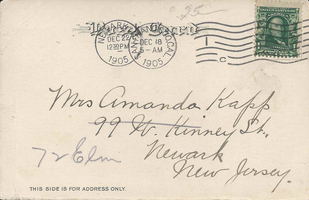 25
NEWARK
DEC 22
12-30PM
1905
SANTA ANA CAL.
DEC 18
5-AM
1905
Mrs Amanda Kapp
99 W. Kinney St,
72 Elm
Newark
New Jersey.
THIS SIDE IS FOR ADDRESS ONLY.